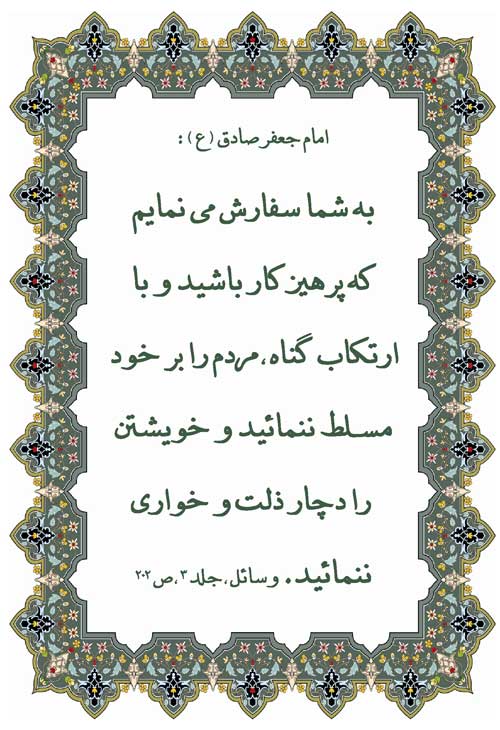 امام جعفر صادق (ع) :
به شما سفارش می نمایم
که پرهیز کار باشید و با
ارتکاب گناه، مردم را بر خود
مسلط ننمائید و خویشتن
را دچار ذلت و خواری
ننمائید. وسائل، جلد ۳، ص ۲۰۲